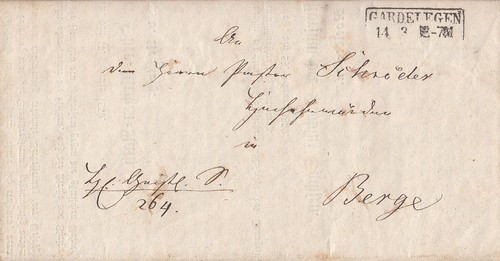 GARDELEGEN
14 3 -7M
An
den Herrn Pastor Schröder
Hochehrwürden
in
Berge
264.